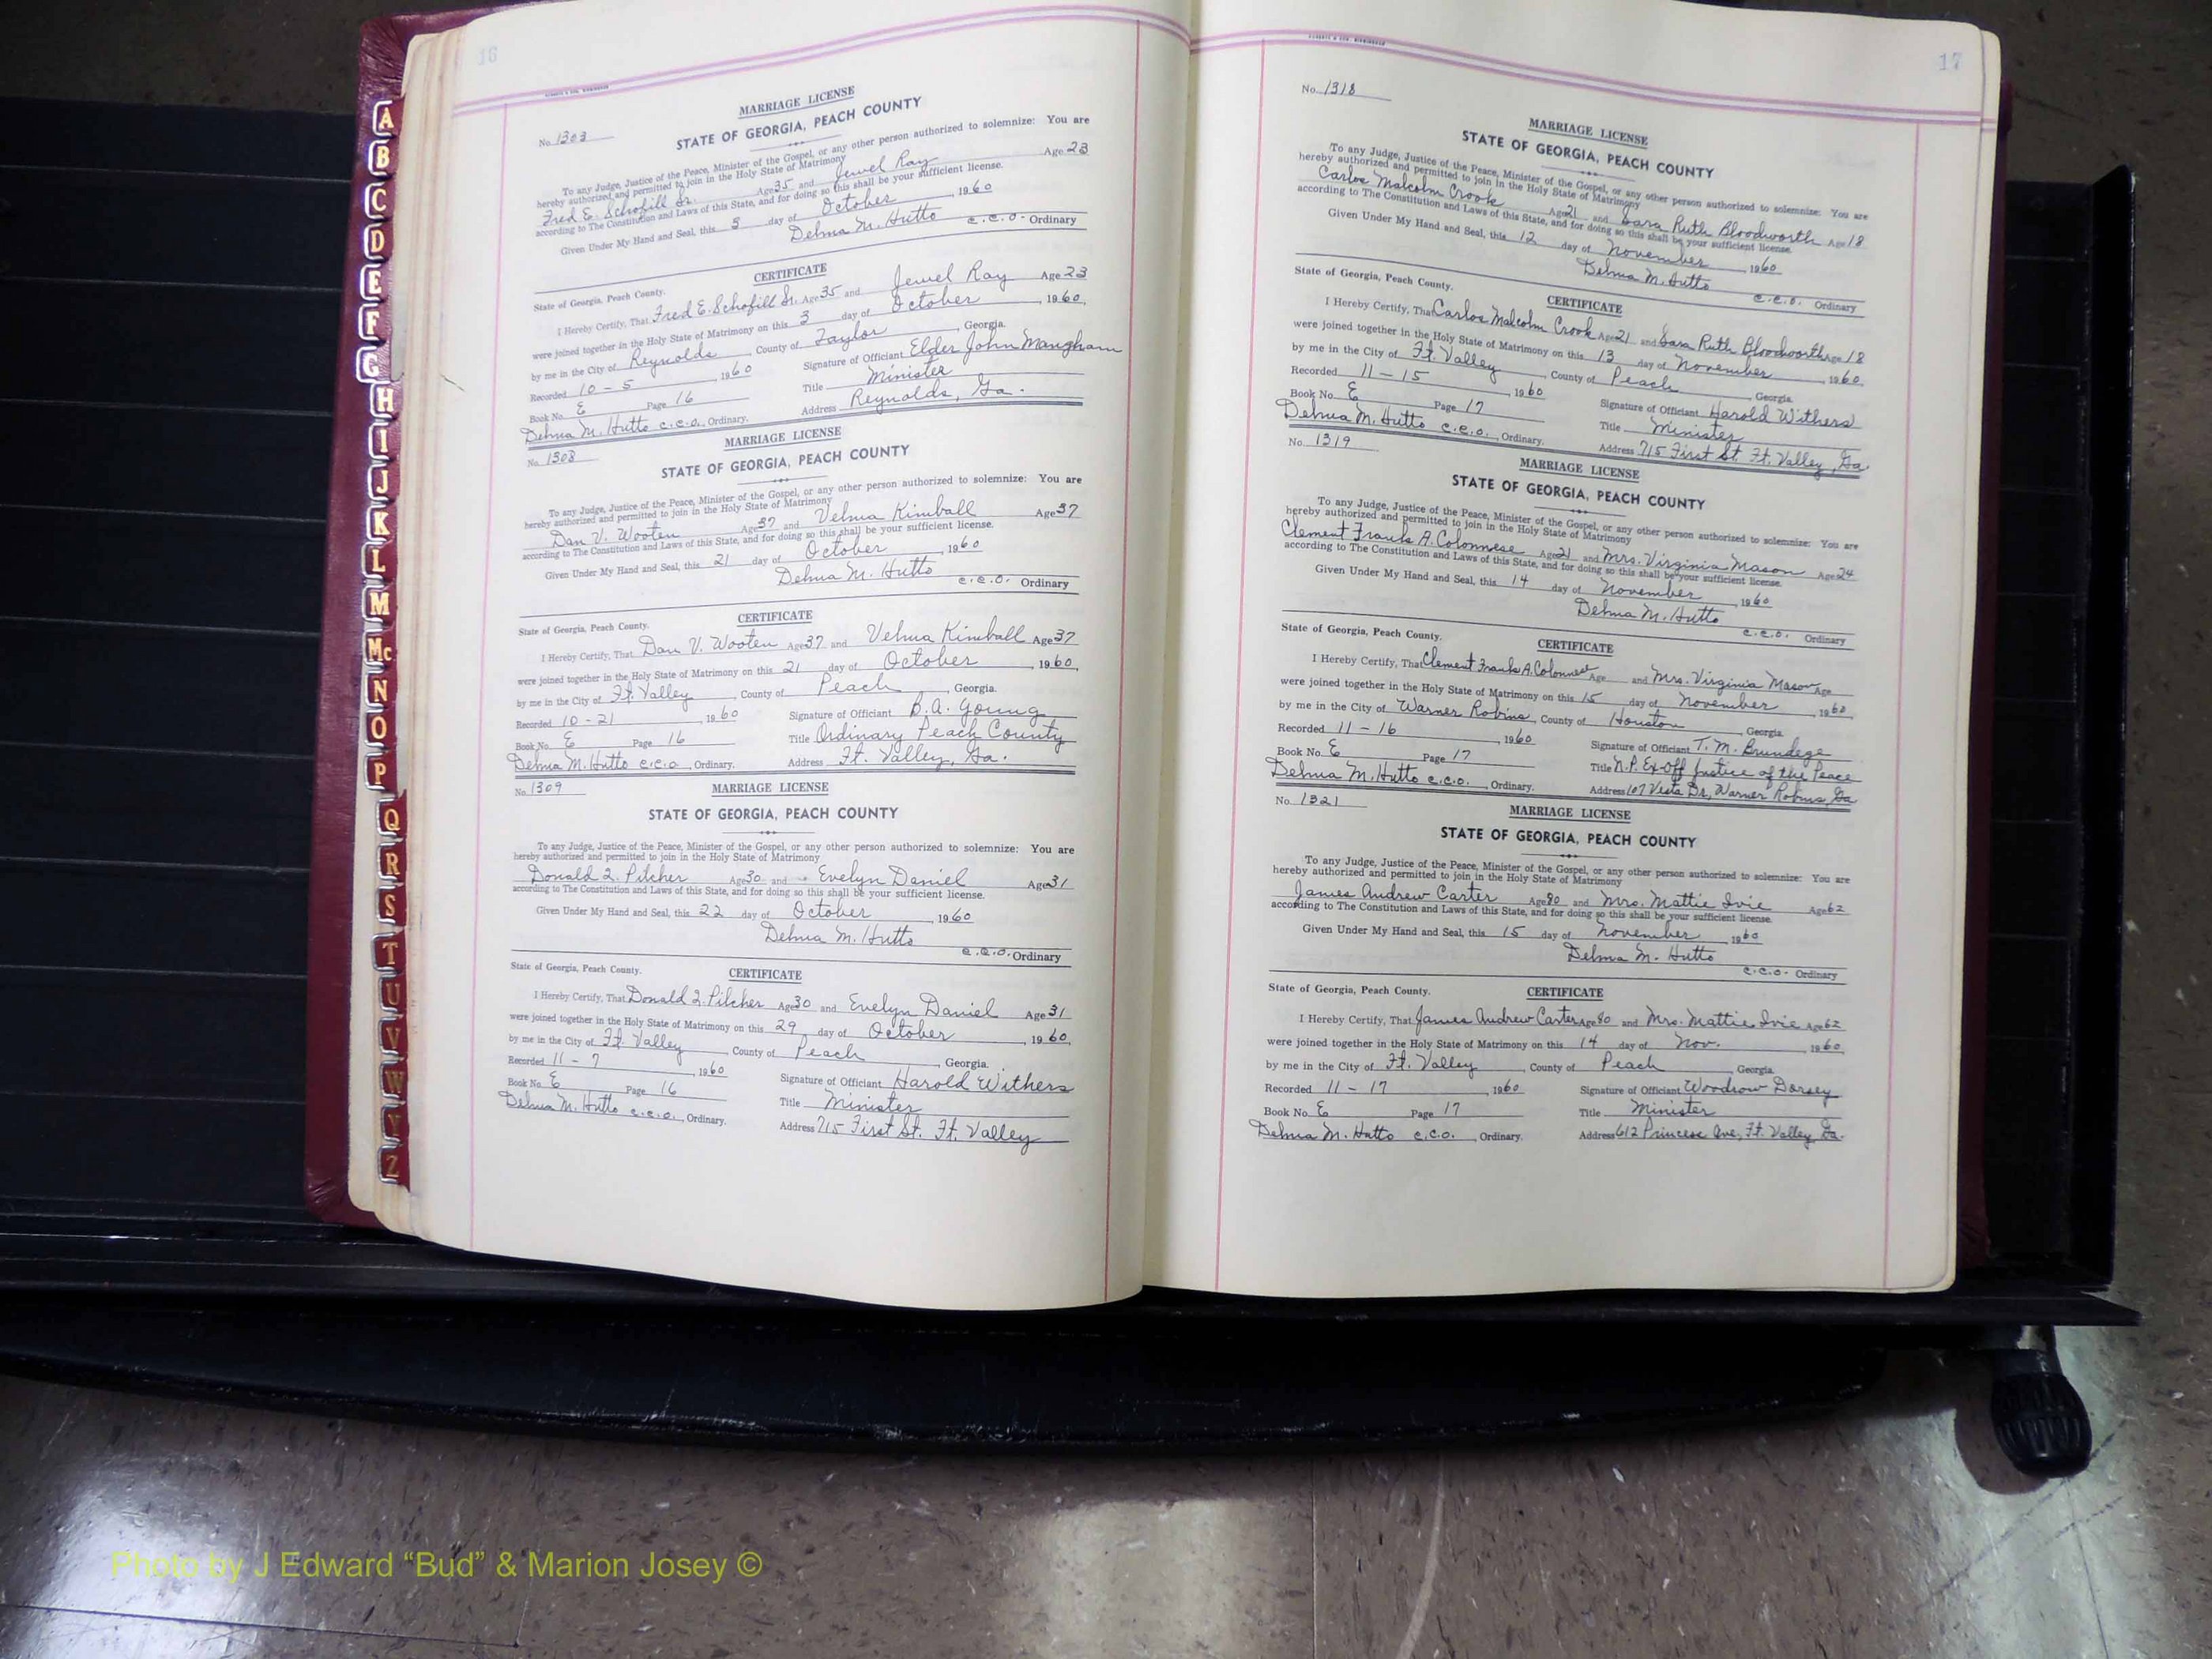 16
No. 1303
MARRIAGE LICENSE
STATE OF GEORGIA, PEACH COUNTY
To any Judge, Justice of the Peace, Minister of the Gospel, or any other person authorized to solemnize: You are
hereby authorized and permitted to join in the Holy State of Matrimony
Fred E. Schofill Sr. Age 35 and Jewel Ray Age 23
according to The Constitution and Laws of this State, and for doing so this shall be your sufficient license.
Given Under My Hand and Seal, this 3 day of October, 1960
Delma M. Hutto
C.C.O. Ordinary
CERTIFICATE
State of Georgia, Peach County.
I Hereby Certify, That Fred E. Schofill Sr. Age 35 and Jewel Ray Age 23
were joined together in the Holy State of Matrimony on this 3 day of October, 1960,
by me in the City of Reynolds, County of Taylor, Georgia.
Recorded 10-5, 1960 Signature of Officiant Elder John Maugham
Book No. E Page 16 Title Minister
Delma M. Hutto C.C.O., Ordinary. Address Reynolds, Ga.
No. 1308
MARRIAGE LICENSE
STATE OF GEORGIA, PEACH COUNTY
To any Judge, Justice of the Peace, Minister of the Gospel, or any other person authorized to solemnize: You are
hereby authorized and permitted to join in the Holy State of Matrimony
Dan V. Wooten Age 37 and Velma Kimball Age 37
according to The Constitution and Laws of this State, and for doing so this shall be your sufficient license.
Given Under My Hand and Seal, this 21 day of October, 1960
Delma M. Hutto
C.C.O. Ordinary
CERTIFICATE
State of Georgia, Peach County.
I Hereby Certify, That Dan V. Wooten Age 37 and Velma Kimball Age 37
were joined together in the Holy State of Matrimony on this 21 day of October, 1960,
by me in the City of Ft. Valley, County of Peach, Georgia.
Recorded 10-21, 1960 Signature of Officiant B.A. Young
Book No. E Page 16 Title Ordinary Peach County
Delma M. Hutto C.C.O., Ordinary. Address Ft. Valley, Ga.
No. 1309
MARRIAGE LICENSE
STATE OF GEORGIA, PEACH COUNTY
To any Judge, Justice of the Peace, Minister of the Gospel, or any other person authorized to solemnize: You are
hereby authorized and permitted to join in the Holy State of Matrimony
Donald L. Pilcher Age 30 and Evelyn Daniel Age 31
according to The Constitution and Laws of this State, and for doing so this shall be your sufficient license.
Given Under My Hand and Seal, this 22 day of October, 1960
Delma M. Hutto
C.C.O. Ordinary
State of Georgia, Peach County. CERTIFICATE
I Hereby Certify, That Donald L. Pilcher Age 30 and Evelyn Daniel Age 31
were joined together in the Holy State of Matrimony on this 29 day of October, 1960,
by me in the City of Ft. Valley, County of Peach, Georgia.
Recorded 11-7, 1960 Signature of Officiant Harold Withers
Book No. E Page 16 Title Minister
Delma M. Hutto C.C.O., Ordinary. Address 715 First St. Ft. Valley
17
No. 1318
MARRIAGE LICENSE
STATE OF GEORGIA, PEACH COUNTY
To any Judge, Justice of the Peace, Minister of the Gospel, or any other person authorized to solemnize: You are
hereby authorized and permitted to join in the Holy State of Matrimony
Carlos Malcolm Crook Age 21 and Sara Ruth Bloodworth Age 18
according to The Constitution and Laws of this State, and for doing so this shall be your sufficient license.
Given Under My Hand and Seal, this 12 day of November, 1960
Delma M. Hutto
C.C.O. Ordinary
State of Georgia, Peach County.
CERTIFICATE
I Hereby Certify, That Carlos Malcolm Crook Age 21 and Sara Ruth Bloodworth Age 18
were joined together in the Holy State of Matrimony on this 13 day of November, 1960,
by me in the City of Ft. Valley, County of Peach, Georgia.
Recorded 11-15, 1960 Signature of Officiant Harold Withers
Book No. E Page 17 Title Minister
Delma M. Hutto C.C.O., Ordinary. Address 715 First St. Ft. Valley, Ga.
No. 1319
MARRIAGE LICENSE
STATE OF GEORGIA, PEACH COUNTY
To any Judge, Justice of the Peace, Minister of the Gospel, or any other person authorized to solemnize: You are
hereby authorized and permitted to join in the Holy State of Matrimony
Clement Frank A. Colonnese Age 21 and Mrs. Virginia Mason Age 24
according to The Constitution and Laws of this State, and for doing so this shall be your sufficient license.
Given Under My Hand and Seal, this 14 day of November, 1960
Delma M. Hutto
C.C.O. Ordinary
State of Georgia, Peach County.
CERTIFICATE
I Hereby Certify, That Clement Frank A. Colonnese Age and Mrs. Virginia Mason Age
were joined together in the Holy State of Matrimony on this 15 day of November, 1960,
by me in the City of Warner Robins, County of Houston, Georgia.
Recorded 11-16, 1960 Signature of Officiant T. M. Brundege
Book No. E Page 17 Title N.P. Ex-Off Justice of the Peace
Delma M. Hutto C.C.O., Ordinary. Address 107 Vesta Dr, Warner Robins, Ga
No. 1321
MARRIAGE LICENSE
STATE OF GEORGIA, PEACH COUNTY
To any Judge, Justice of the Peace, Minister of the Gospel, or any other person authorized to solemnize: You are
hereby authorized and permitted to join in the Holy State of Matrimony
James Andrew Carter Age 80 and Mrs. Mattie Ivie Age 62
according to The Constitution and Laws of this State, and for doing so this shall be your sufficient license.
Given Under My Hand and Seal, this 15 day of November, 1960
Delma M. Hutto
C.C.O. Ordinary
State of Georgia, Peach County. CERTIFICATE
I Hereby Certify, That James Andrew Carter Age 80 and Mrs. Mattie Ivie Age 62
were joined together in the Holy State of Matrimony on this 14 day of Nov., 1960,
by me in the City of Ft. Valley, County of Peach, Georgia.
Recorded 11-17, 1960 Signature of Officiant Woodrow Dorsey
Book No. E Page 17 Title Minister
Delma M. Hutto C.C.O., Ordinary. Address 612 Princess Ave, Ft. Valley Ga.
A
B
C
D
E
F
G
H
I
J
K
L
M
Mc
N
O
P
Q
R
S
T
U
V
W
Y
Z
Photo by J Edward “Bud” & Marion Josey ©